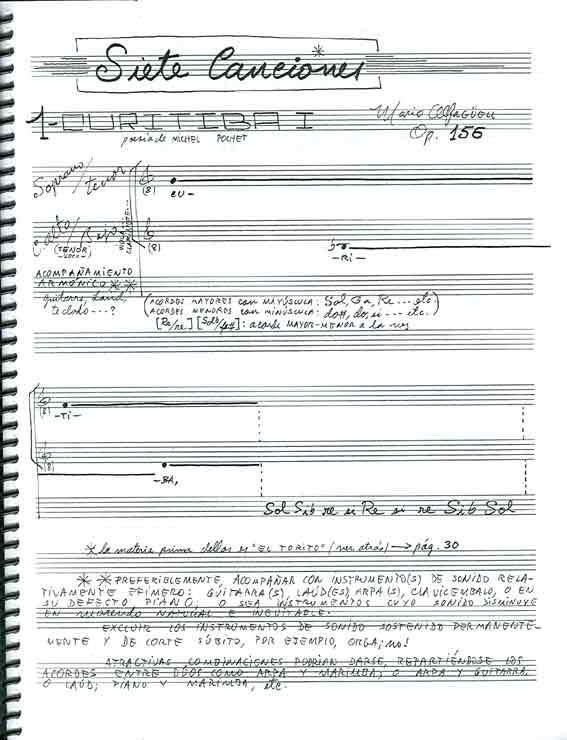 Siete Canciones *
1- CURITIBA I
Mario Alfagüell
poesía de MICHEL POCHET
Op. 156
Soprano/
tenor
(8)
CU-
C.alto/
Bajo
(TENOR)
(8)
-RI-
ACOMPAÑAMIENTO
ARMÓNICO **
guitarra, laúd,
teclado---?
(ACORDES MAYORES con MAYÚSCULA: Sol, Fa, Re --- etc.)
(ACORDES MENORES con MINÚSCULA: do#, do, si --- etc.)
[Re/re] [Solb/fa#]: acorde MAYOR-MENOR a la vez
(8)
-TI-
(8)
-BA,
Sol Sib re si Re si re Sib Sol
* la materia prima dellas es "EL TORITO" (ver atrás) → pág. 30
* * PREFERIBLEMENTE, ACOMPAÑAR CON INSTRUMENTO(S) DE SONIDO RELA-
TIVAMENTE EFÍMERO: GUITARRA(S), LAÚD(ES), ARPA(S), CLAVICEMBALO, O EN
SU DEFECTO PIANO. O SEA INSTRUMENTOS CUYO SONIDO DISMINUYE
EN NATURAL E INEVITABLE.
EXCLUIR LOS INSTRUMENTOS DE SONIDO SOSTENIDO PERMANENTE-
MENTE Y DE CORTE SÚBITO, POR EJEMPLO, ORGA¡no!
ATRACTIVAS COMBINACIONES PODRÍAN DARSE, REPARTIÉNDOSE LOS
ACORDES ENTRE DÚOS COMO ARPA Y MARIMBA, O ARPA Y GUITARRA
O LAÚD; PIANO Y MARIMBA, etc.